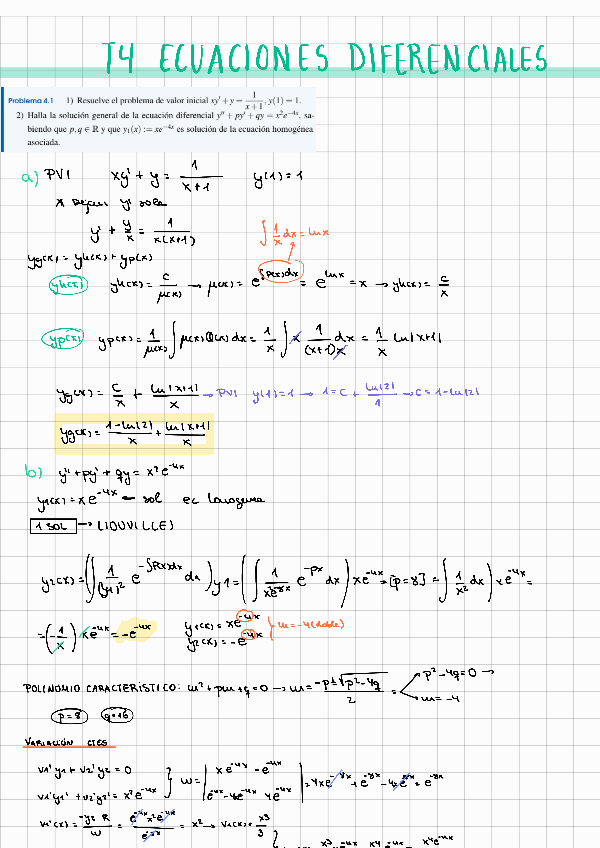 T4 ECUACIONES DIFERENCIALES
Problema 4.1 1) Resuelve el problema de valor inicial xy' + y = 1/(x+1), y(1) = 1.
2) Halla la solución general de la ecuación diferencial y'' + py' + qy = x²e^{-4x}, sa-
biendo que p, q ∈ ℝ y que y₁(x) := xe^{-4x} es solución de la ecuación homogénea
asociada.
a) PVI xy' + y = 1/(x+1) y(1) = 1
y' + y/x = 1/(x(x+1)) ∫ 1/x dx = ln x
yg(x) = yh(x) + yp(x)
yh(x) yh(x) = C/μ(x) → μ(x) = e^{∫P(x)dx} = e^{ln x} = x → yh(x) = C/x
yp(x) yp(x) = 1/μ(x) ∫ μ(x) Q(x) dx = 1/x ∫ x 1/((x+1)x) dx = 1/x ln|x+1|
yg(x) = C/x + ln|x+1|/x → PVI y(1) = 1 → 1 = C + ln|2|/1 → C = 1 - ln|2|
yg(x) = (1 - ln|2|)/x + ln|x+1|/x
b) y'' + py' + qy = x² e^{-4x}
y1(x) = x e^{-4x} sol ec homogenea
1 SOL → LIOUVILLE)
y2(x) = (∫ 1/(y1)² e^{-∫P(x)dx} dx) y1 = (∫ 1/(x²e^{-8x}) e^{-px} dx) x e^{-4x} = [p = 8] = ∫ 1/x² dx) x e^{-4x} =
= (-1/x) x e^{-4x} = -e^{-4x} y1(x) = x e^{-4x} y2(x) = -e^{-4x} m = -4 (doble)
POLINOMIO CARACTERÍSTICO: m² + pm + q = 0 → m = (-p ± √(p² - 4q))/2 = p² - 4q = 0 → m = -4
p = 8 q = 16
VARIACIÓN CTES
v1' y1 + v2' y2 = 0
v1' y1' + v2' y2' = x² e^{-4x} W = | x e^{-4x} -e^{-4x} ; e^{-4x} - 4x e^{-4x} 4e^{-4x} | = 4x e^{-8x} + e^{-8x} - 4x e^{-8x} = e^{-8x}
v1'(x) = -y2 R/W = e^{-4x} x² e^{-4x}/e^{-8x} = x² → v1(x) = x³/3